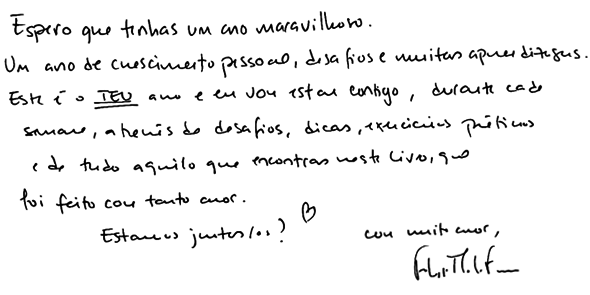 Espero que tenhas um ano maravilhoso.
Um ano de crescimento pessoal, desafios e muitas aprendizagens.
Este é o TEU ano e eu vou estar contigo, durante cada
semana, através de desafios, dicas, exercícios práticos
e de tudo aquilo que encontras neste livro, que
foi feito com tanto amor.
Estamos juntos/as?
com muito amor,